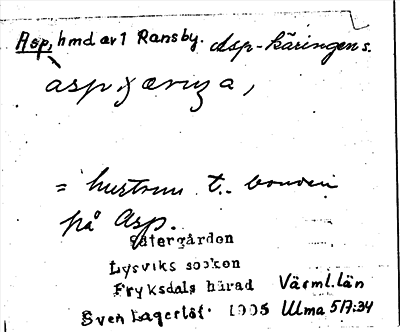 Asp, hmd. av 1 Ransby. Asp-käringen s.
= hustrun t. bonden
på Asp.
Sätergården
Lysviks socken
Fryksdals härad Värml. län
Sven Lagerlöf 1905 Ulma 517:34